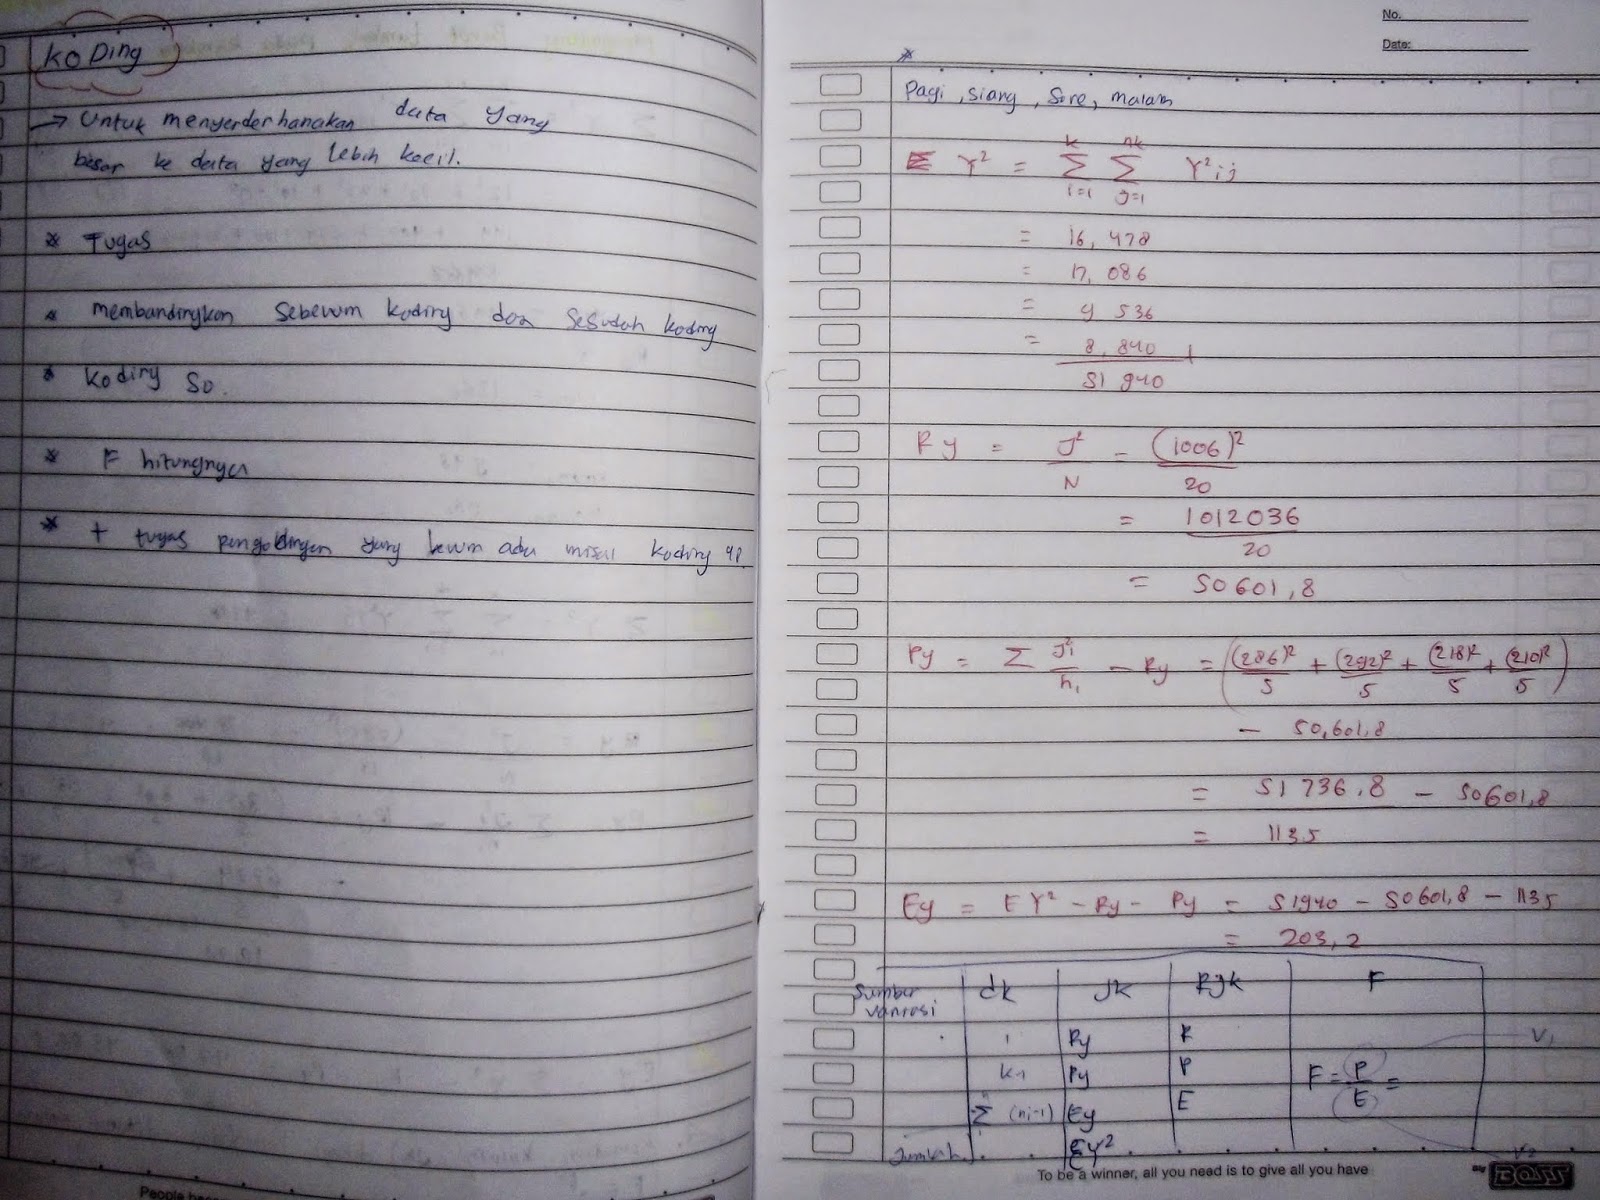 koDing
→ Untuk menyerderhanakan data yang
besar ke data yang lebih kecil.
* Tugas
* membandingkan sebelum koding dan sesudah koding
* koding 50.
* F hitungnya
* + tugas yang belum ada misal koding
No.
Date:
*
Pagi, siang, sore, malam
Σ Y² = Σ Σ Y²ij
k nk
i=1 j=1
= 16,478
= 17,086
= 9 536
= 8,840 +
51 940
Ry = J²/N = (1006)²/20
= 1012036/20
= 50601,8
Py = Σ Ji²/ni - Ry = ((286)²/5 + (292)²/5 + (218)²/5 + (210)²/5)
- 50,601,8
= 51736,8 - 50601,8
= 1135
Ey = ΣY² - Ry - Py = 51940 - 50601,8 - 1135
= 203,2
Sumber variasi dk JK RJK F
1 Ry R
k-1 Py P F = P/E =
Σ (ni-1) Ey E
Jumlah ΣY²
V1
V2
To be a winner, all you need is to give all you have
BOSS